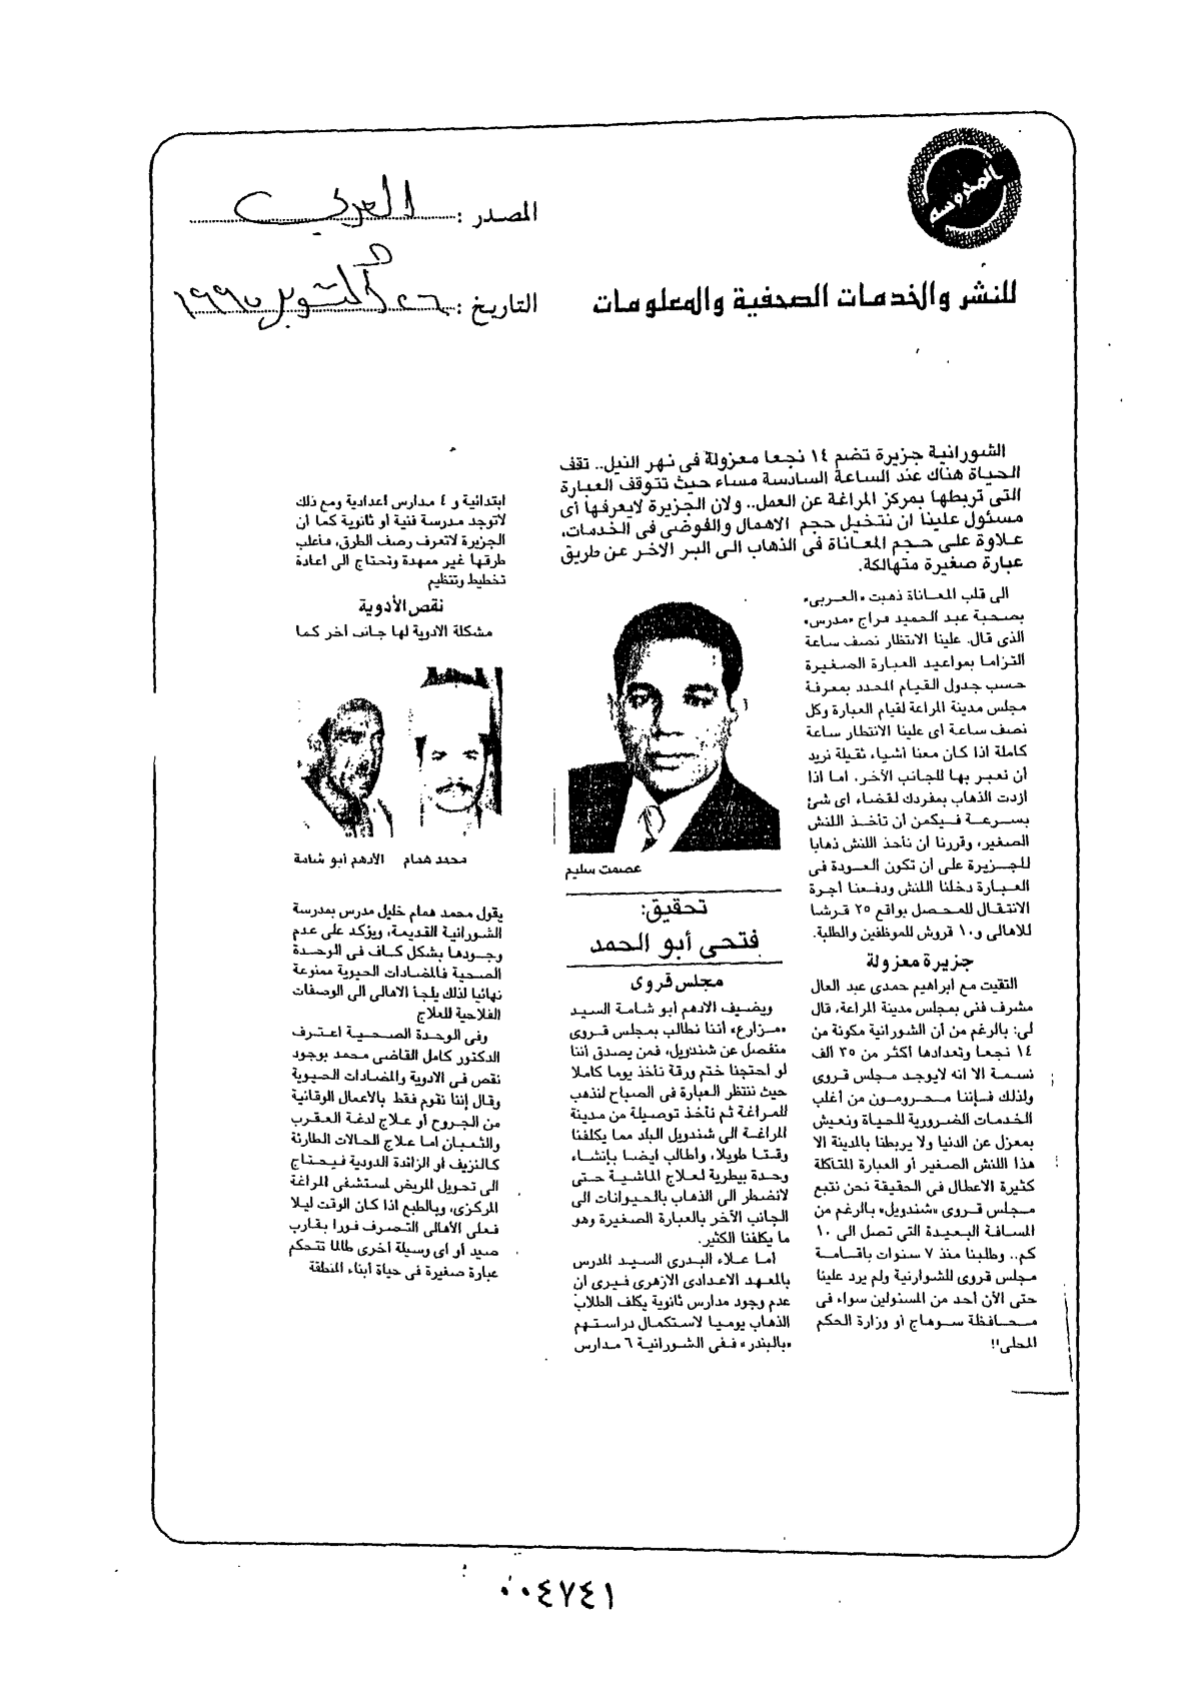 المحروسة
للنشر والخدمات الصحفية والمعلومات
المصدر : العربي
التاريخ : ٢٦ أكتوبر ١٩٩٥
الشورانية جزيرة تضم ١٤ نجعا معزولة فى نهر النيل.. تقف
الحياة هناك عند الساعة السادسة مساء حيث تتوقف العبارة
التى تربطها بمركز المراغة عن العمل.. ولان الجزيرة لايعرفها أى
مسئول علينا ان نتخيل حجم الاهمال والفوضى فى الخدمات،
علاوة على حجم المعاناة فى الذهاب الى البر الاخر عن طريق
عبارة صغيرة متهالكة.
الى قلب المعاناة ذهبت «العربى»
بصحبة عبد الحميد فراج «مدرس»
الذى قال. علينا الانتظار نصف ساعة
التزاما بمواعيد العبارة الصغيرة
حسب جدول القيام المحدد بمعرفة
مجلس مدينة المراغة لقيام العبارة وكل
نصف ساعة اى علينا الانتطار ساعة
كاملة اذا كان معنا أشياء ثقيلة نريد
أن نعبر بها للجانب الآخر. اما اذا
اردت الذهاب بمفردك لقضاء اى شئ
بسرعة فيكمن أن تأخذ اللنش
الصغير، وقررنا ان نأخذ اللنش ذهابا
للجزيرة على أن تكون العودة فى
العبارة دخلنا اللنش ودفعنا اجرة
الانتقال للمحصل بواقع ٢٥ قرشا
للاهالى و١٠ قروش للموظفين والطلبة.
جزيرة معزولة
التقيت مع ابراهيم حمدى عبد العال
مشرف فنى بمجلس مدينة المراغة، قال
لى: بالرغم من أن الشورانية مكونة من
١٤ نجعا وتعدادها أكثر من ٣٥ الف
نسمة الا انه لايوجد مجلس قروى
ولذلك فإننا محرومون من أغلب
الخدمات الضرورية للحياة ونعيش
بمعزل عن الدنيا ولا يربطنا بالمدينة الا
هذا اللنش الصغير أو العبارة المتآكلة
كثيرة الاعطال فى الحقيقة نحن نتبع
مجلس قروى «شندويل» بالرغم من
المسافة البعيدة التى تصل الى ١٠
كم.. وطلبنا منذ ٧ سنوات باقامة
مجلس قروى للشوارنية ولم يرد علينا
حتى الأن أحد من المسئولين سواء فى
محافظة سوهاج أو وزارة الحكم
المحلى!!
عصمت سليم
تحقيق:
فتحى أبو الحمد
مجلس قروى
ويضيف الادهم أبو شامة السيد
«مزارع» أننا نطالب بمجلس قروى
منفصل عن شندويل، فمن يصدق أننا
لو احتجنا ختم ورقة تأخذ يوما كاملا
حيث ننتظر العبارة فى الصباح لنذهب
للمراغة ثم نأخذ توصيلة من مدينة
المراغة الى شندويل البلد مما يكلفنا
وقتا طويلا، وأطالب ايضا بإنشاء
وحدة بيطرية لعلاج الماشية حتى
لانضطر الى الذهاب بالحيوانات الى
الجانب الآخر بالعبارة الصغيرة وهو
ما يكلفنا الكثير.
أما علاء البدرى السيد المدرس
بالمعهد الاعدادى الازهرى فيرى أن
عدم وجود مدارس ثانوية يكلف الطلاب
الذهاب يوميا لاستكمال دراستهم
«بالبندر» ففى الشورانية ٦ مدارس
ابتدائية و ٤ مدارس اعدادية ومع ذلك
لاتوجد مدرسة فنية أو ثانوية كما أن
الجزيرة لاتعرف رصف الطرق، فأغلب
طرقها غير ممهدة وتحتاج الى اعادة
تخطيط وتنظيم
نقص الأدوية
مشكلة الادوية لها جانب أخر كما
محمد همام
الأدهم أبو شامة
يقول محمد همام خليل مدرس بمدرسة
الشورانية القديمة، ويؤكد على عدم
وجودها بشكل كاف فى الوحدة
الصحية فالمضادات الحيوية ممنوعة
نهائيا لذلك يلجأ الاهالى الى الوصفات
الفلاحية للعلاج
وفى الوحدة الصحية اعترف
الدكتور كامل القاضى محمد بوجود
نقص فى الادوية والمضادات الحيوية
وقال إننا نقوم فقط بالأعمال الوقائية
من الجروح أو علاج لدغة العقرب
والثعبان اما علاج الحالات الطارئة
كالنزيف او الزائدة الدودية فيحتاج
الى تحويل المريض لمستشفى المراغة
المركزى، وبالطبع اذا كان الوقت ليلا
فعلى الأهالى التصرف فورا بقارب
صيد أو أى وسيلة أخرى طالما تتحكم
عبارة صغيرة فى حياة أبناء المنطقة
٠٠٤٧٤١